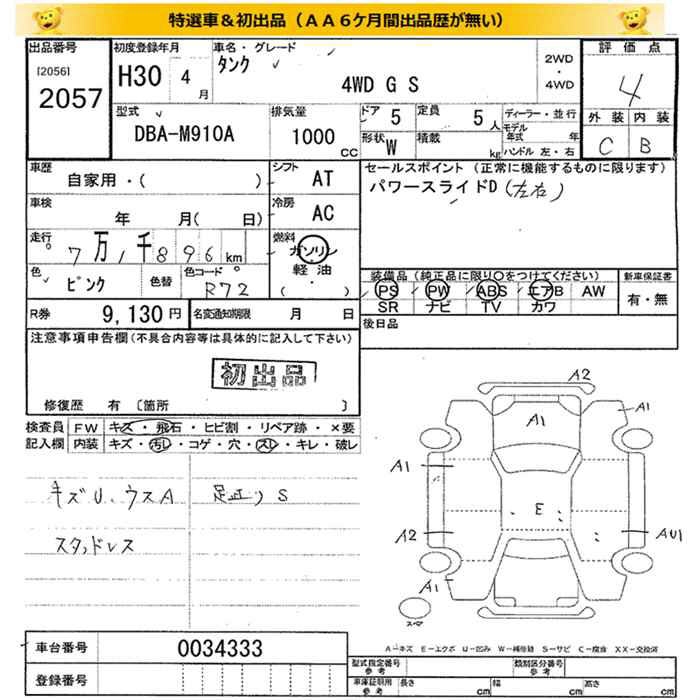 特選車＆初出品（ＡＡ６ケ月間出品歴が無い）
出品番号 初度登録年月 車名・グレード 評価点
[2056] タンク 2WD・4WD
2057 H30 4月 4WD G S 4
型式 排気量 ドア 5 定員 5人 ディーラー・並行 外装 内装
DBA-M910A 1000CC 形状 W 積載 kg モデル年式 年 C B
ハンドル 左・右
車歴 シフト セールスポイント（正常に機能するものに限ります）
自家用・( ) AT パワースライドD(左右)
車検 年 月( 日) 冷房 AC
走行 7万1千896km 燃料 ガソリン・軽油・( )
色 ピンク 色替 色コード R72
装備品（純正品に限り〇をつけてください） 新車保証書
PS PW ABS エアB AW 有・無
SR ナビ TV カワ
R券 9,130円 名変通知期限 月 日 後日品
注意事項申告欄(不具合内容等は具体的に記入して下さい)
初出品
修復歴 有〔箇所 〕
検査員 FW キズ・飛石・ヒビ割・リペア跡・×要
記入欄 内装 キズ・汚レ・コゲ・穴・スレ・キレ・破レ
キズU、ウスA 足正リS
スタッドレス
A2
A1 A1
A1
E
A2 AU1
A1
スペア
A－キズ E－エクボ U－凹み W－補修跡 S－サビ C－腐食 XX－交換済
車台番号 0034333 型式指定番号 参考 類別区分番号 参考
登録番号 車庫証明用 参考 長さ cm 幅 cm 高さ cm